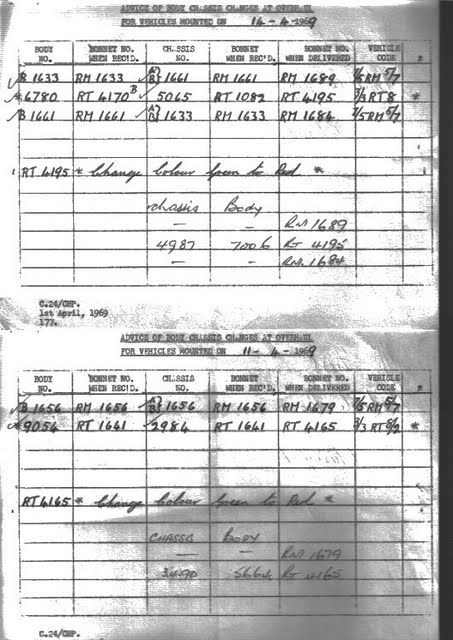 ADVICE OF BODY CHASSIS CHANGES AT OVERHAUL
FOR VEHICLES MOUNTED ON 14-4-1969
BODY NO. BONNET NO. WHEN REC'D. CHASSIS NO. BONNET WHEN REC'D. BONNET NO. WHEN DELIVERED VEHICLE CODE *
✓ B 1633 RM 1633 A/B} 1661 RM 1661 RM 1689 7/5 RM 5/7
✓* 6780 RT 4170 B ✓ 5065 RT 1082 RT 4195 3/3 RT 8 *
✓ B 1661 RM 1661 A/B} 1633 RM 1633 RM 1684 7/5 RM 5/7
RT 4195 * Change Colour Green to Red *
Chassis Body
— — RM 1689
4987 7006 RT 4195
— — RM 1684
C.24/CHP.
1st April, 1969
177.
ADVICE OF BODY CHASSIS CHANGES AT OVERHAUL
FOR VEHICLES MOUNTED ON 11-4-1969
BODY NO. BONNET NO. WHEN REC'D. CHASSIS NO. BONNET WHEN REC'D. BONNET NO. WHEN DELIVERED VEHICLE CODE *
✓ B 1656 RM 1656 A/B} 1656 RM 1656 RM 1679 7/5 RM 5/7
✓* 9054 RT 1641 ✓ 2984 RT 1641 RT 4165 3/3 RT 8/2 *
RT 4165 * Change Colour Green to Red *
CHASSIS BODY
— — RM 1679
3490 5664 RT 4165
C.24/CHP.